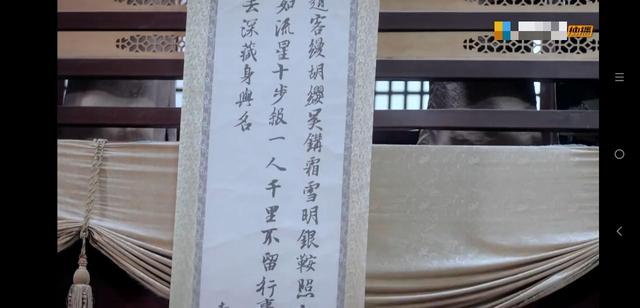 趙客縵胡纓吳鉤霜雪明銀鞍照
如流星十步殺一人千里不留行事
去深藏身與名